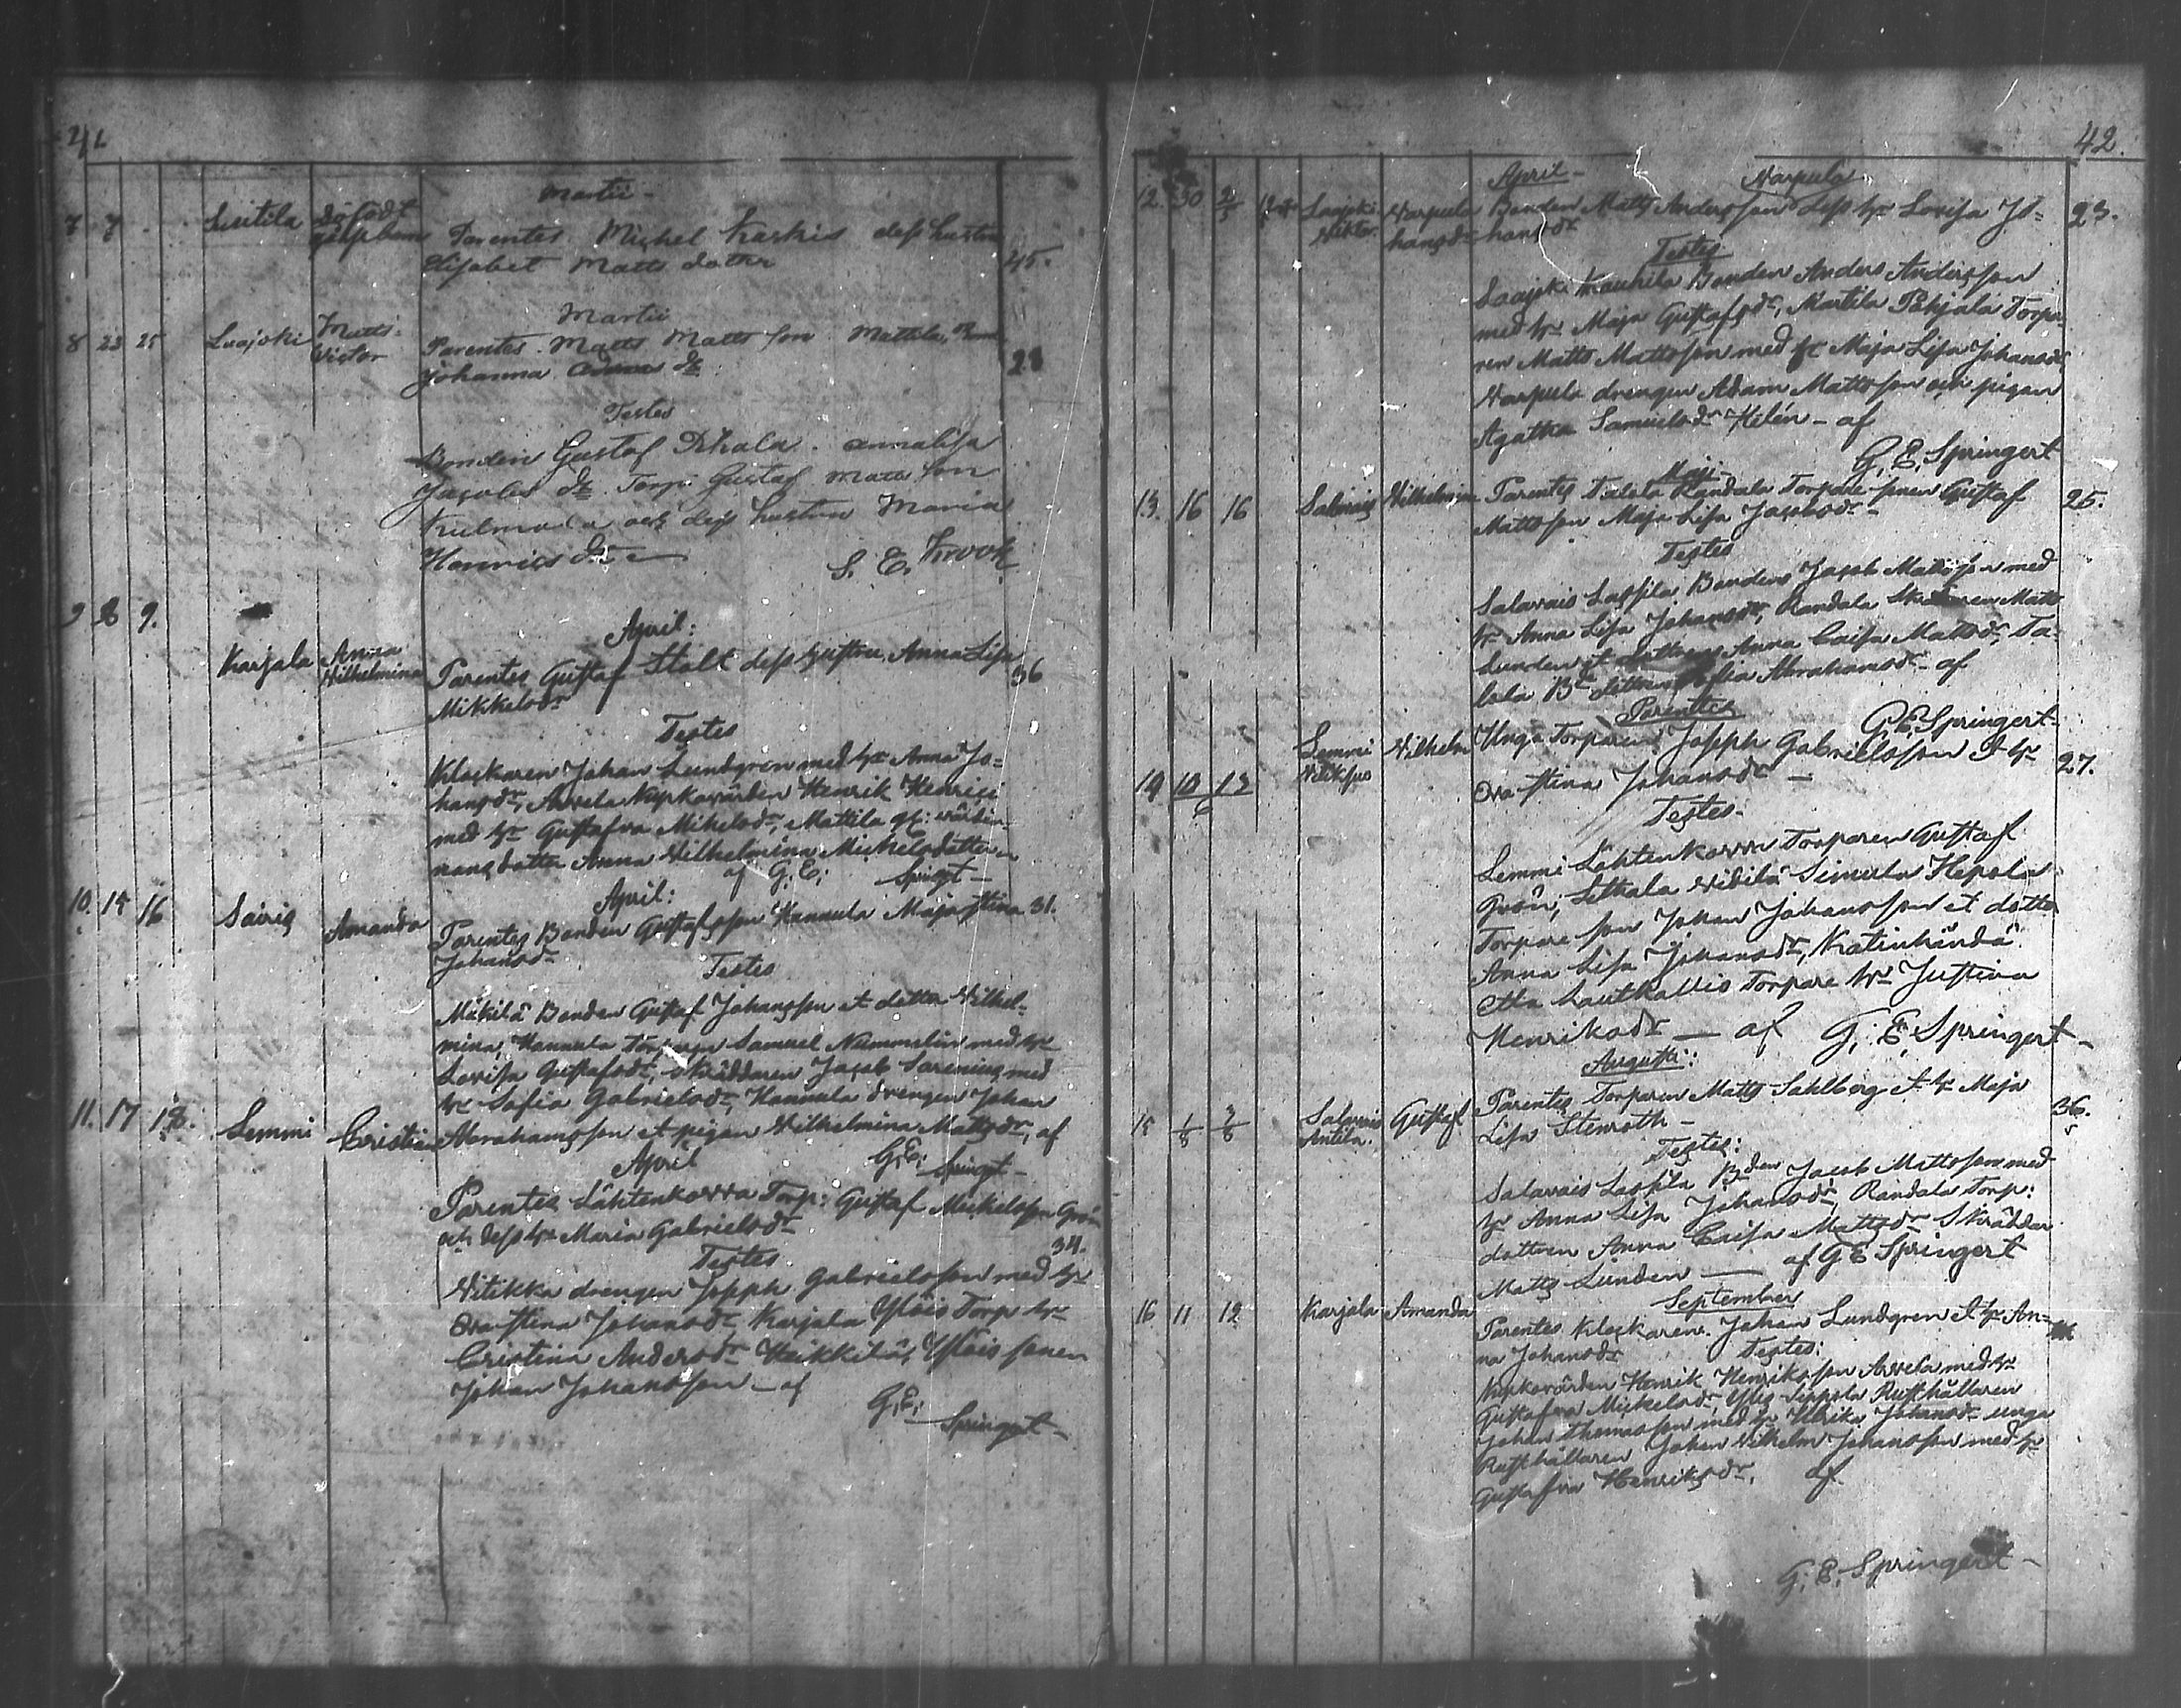 41
Martii
7 7 Lisitila dödfödt gåssbarn Parentes Michel Karkis dess hustru
Elisabet Matts dotter 45.
Martii
8 23 25 Laajoki Matts Victor Parentes. Matts Mattsson Mattila,
Johanna 28
Testes
Bonden Gustaf Annalisa
Jacobs dr. Torp. Gustaf Matts son
och dess hustru Maria
Henrics dr
S. E. Krook
9 8 9.
April:
Karjala Anna Wilhelmina Parentes Gustaf Stolt dess hustru Anna Lisa 36
Mikkelsdr
Testes
Klockaren Johan Lundgren med hu Anna Jo=
hansdr, Arvela Kyrkovärden Henrik Henrics
med hu Gustafva Mikelsdr, Mattila
dotter Anna Wilhelmina Mickelsdotter
af G. E. Springt
10. 15 16 April:
Sairis Amanda Parentes Bonden Gustafsson Hannula Maja Stina 31.
Johansdr
Testes
Mäkilä Bonden Gustaf Johansson et dotter Wilhel-
mina, Hannula Torparen Samuel Nummelin med hu
Lovisa Gustafsdr, Skräddaren Jacob Sarenius med
hu Sofia Gabrielsdr, Hannula drengen Johan
Abrahamsson et pigan Wilhelmina Mattsdr, af
G. E. Springt
11. 17 18. Lemmi Cristian April
Parentes Lähtenkorva Torp: Gustaf Mickelsson Grön
och dess hu Maria Gabrielsdr 34.
Testes
Witikka drengen Joseph Gabrielsson med hu
Eva Stina Johansdr Karjala Yläis Torp hu
Cristina Andersdr Heikkilä, Yläis sonen
Johan Johansson – af
G. E. Springt
42.
April – Narpula
12. 30 2/5 Laajoki Narpula Bonden Matts Andersson dess hu Lovisa Jo= 23.
hansdr
Testes
Laajoki Kauhila Bonden Anders Andersson
med hu Maja Gustafsdr, Martila Pohjala Torpa-
ren Matts Mattsson med hu Maja Lisa Johansdr
Narpula drengen Adam Mattsson och pigan
Agatha Samuelsdr Helén – af
G. E. Springert
Maji –
13. 16 16 Salavais Wilhelmina Parentes Talola Randala Torpare sonen Gustaf 25.
Mattsson Maja Lisa Jacobsdr –
Testes
Salavais Lassila Bonden Jacob Mattsson med
hu Anna Lisa Johansdr, Randala Matts
Lunden et dottren Anna Caisa Mattsdr, Ta-
lola Bde dottren Sofia Abrahamsdr – af
G. E. Springert
Parentes
14 10/6 13 Lemmi Wilhelm Unga Torparen Joseph Gabrielsson et hu 27.
Eva Stina Johansdr –
Testes –
Lemmi Lähtenkorva Torparen Gustaf
Grön, Simula Hepola
Torpare son Johan Johansson et dotter
Anna Lisa Johansdr, Katinhändä
Torpare hu Justina
Henriksdr — af G. E. Springert –
Augusti:
15 1/8 3/8 Salavais Antila. Gustaf Parentes Torparen Matts Sahlberg et hu Maja 36.
Lisa Stenroth –
Testes:
Salavais Lassila Bden Jacob Mattsson med
hu Anna Lisa Johansdr, Randala Torp:
dottren Anna Caisa Mattsdr Skräddar
Matts Lunden — af G E Springert
September
16 11 12 Karjala Amanda Parentes Klockaren Johan Lundgren et hu An-
na Johansdr Testes:
Kyrkovärden Henrik Henriksson Arvela med hu
Gustafva Mickelsdr, Seppala Rusthållaren
Johan Thomasson med hu Ulrika Johansdr unga
Rusthållaren Johan Wilhelm Johansson med hu
Gustafva Henriksdr, af
G. E. Springert –